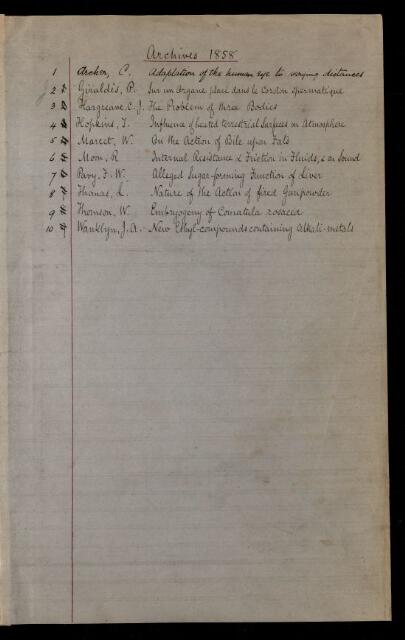 Archives 1858
1 Archer, C. Adaptation of the human eye to varying distances
2 Giraldès, P. Sur un Organe placé dans le Cordon Spermatique
3 Hargreave, C. J. The Problem of three Bodies
4 Hopkins, T. Influence of heated terrestrial Surfaces in Atmosphere
5 Marcet, W. On the Action of Bile upon Fats
6 Moon, R Internal Resistance & Friction in Fluids, & on Sound
7 Pavy, F. W. Alleged Sugar-forming Function of Liver
8 Thomas, L. Nature of the Action of fired Gunpowder
9 Thomson, W. Embryogeny of Comatula rosacea
10 Wanklyn, J. A. - New Ethyl-compounds containing Alkali-metals